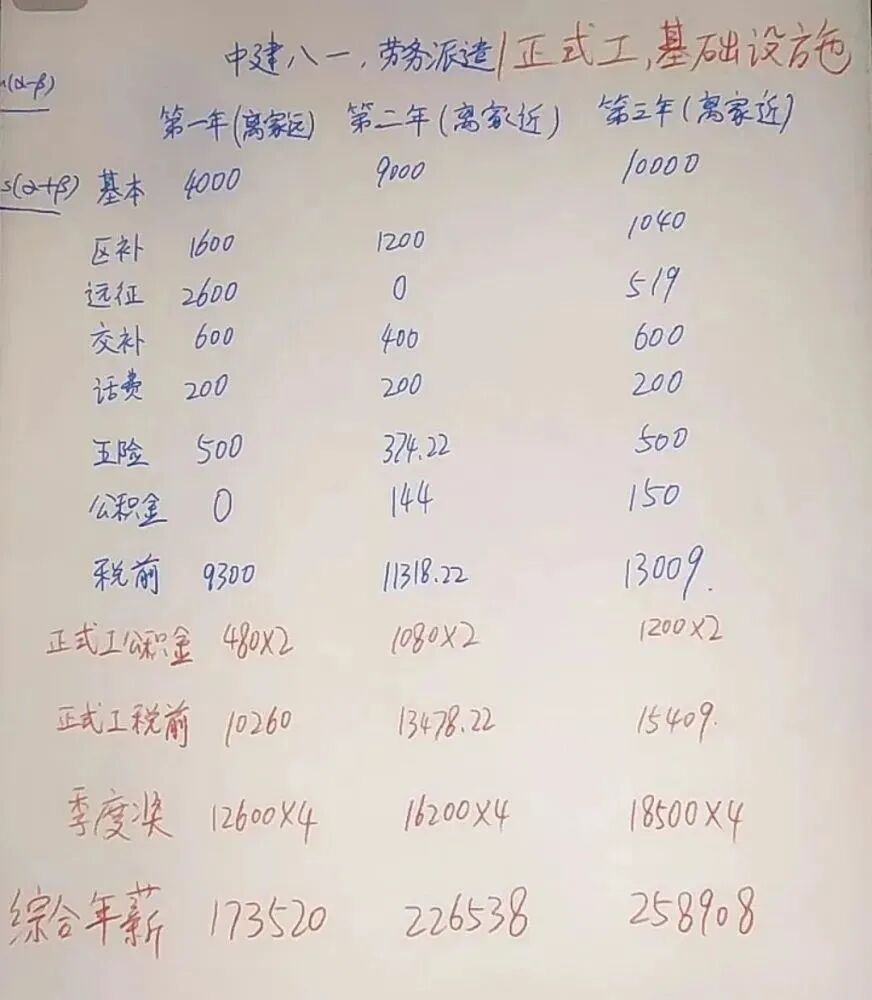 中建八一,劳务派遣/正式工,基础设施
n(α-β)
第一年(离家远) 第二年(离家近) 第三年(离家近)
s(α+β)
基本 4000 9000 10000
区补 1600 1200 1040
远征 2600 0 519
交补 600 400 600
话费 200 200 200
五险 500 374.22 500
公积金 0 144 150
税前 9300 11318.22 13009.
正式工公积金 480×2 1080×2 1200×2
正式工税前 10260 13478.22 15409.
季度奖 12600×4 16200×4 18500×4
综合年薪 173520 226538 258908